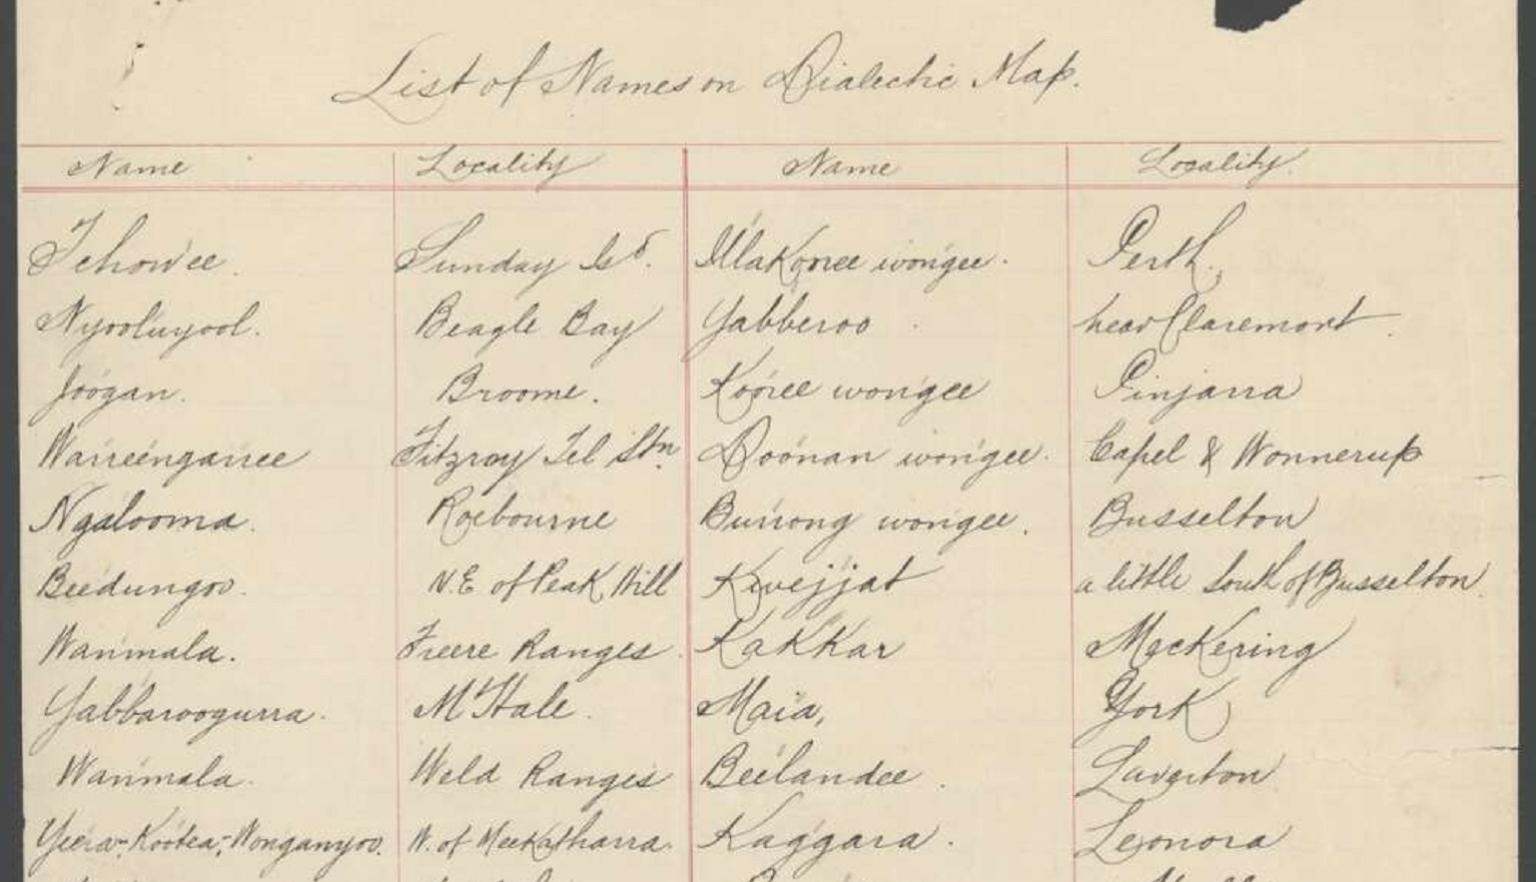 List of Names on Dialectic Map.
Name Locality Name Locality.
Tchow'ee. Sunday Isd. Illa Kooree won'gee. Perth.
Nyool'uyool. Beagle Bay Yabberoo near Claremont.
Joo'gan. Broome. Kooree won'gee Pinjarra
Warreen'garree Fitzroy Tel Stn. Doo'nan won'gee. Capel & Wonnerup
Ngalooma. Roebourne Burrong won'gee. Busselton
Bee'dungoo. N.E of Peak Hill Kwejjat a little South of Busselton.
Wan'mala. Freere Ranges. KaKKar Meckering
Yabbaroogurra. Mt Hale. Maia, York
Wan'mala. Weld Ranges Bee'landee. Laverton
Yeera-Kootea-Wonganyoo. N. of Meekatharra. Kag'gara. Leonora